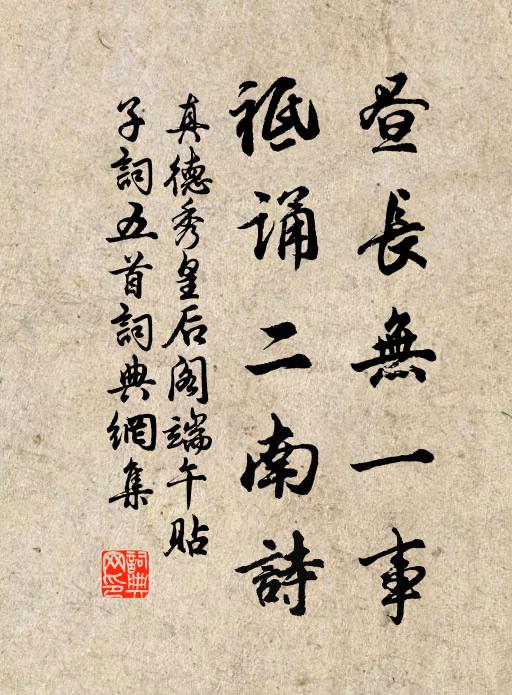 昼長無一事
祗誦二南詩
真德秀皇后阁端午贴
子詞五首詞典網集
詞典网印